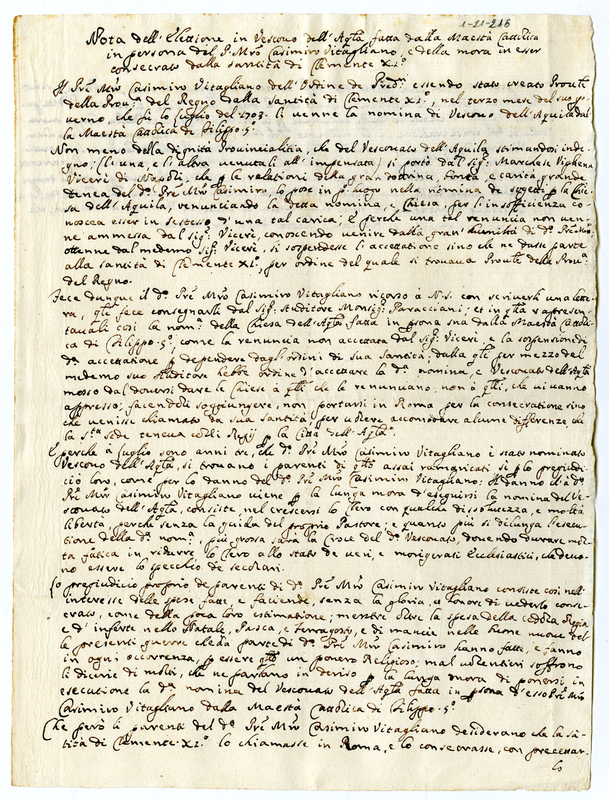 1-21-216
Nota dell'Elettione in Vescouo dell'Agla fatta dalla Maestà Cattolica
in persona del P. Mrõ Casimiro Vitagliano, e della mora in esser
consecrato dalla Santità di Clemente XI.°
Il Prẽ Mrõ Casimiro Vitagliano dell'Ordine de Predri essendo stato creato Prouле
della Prou.a del Regno dalla Santità di Clemente XI.°, nel terzo mese del suo go-
uerno, che fù lo luglio del 1703. li uenne la nomina di Vescouo dell'Aquila dal-
la Maestà Cattolica di Filippo 5.°
Non meno della dignità Prouincialitia, che del Vesconato dell'Aquila stimandosi inde-
gno; l'una, e l'altra uenutali all'impensata; si portò dal Sig.r Marchese Vigliena
Viceré di Napoli, che p le relationi della gran dottrina, bontà, e carità grande
tenea del d.° Prẽ Mrõ Casimiro, lo pose in p.° luogo nella nomina de sogetti p la Chie-
sa dell'Aquila, renunciando la detta nomina, e Chiesa, per l'insofficienza co-
noscea esser in se stesso d'una tal carica; E perche una tal renuncia non uen-
ne ammessa dal Sig.r Viceré, conoscendo uenire dalla gran' humiltà di d.° Prẽ Mrõ,
ottenne dal medemo Sig.r Viceré, si sospendesse l'accettatione sino che ne dasse parte
alla Santità di Clemente XI.°, per ordine del quale si trouaua Prouле della Prou.a
del Regno.
Fece dunque il d.° Prẽ Mrõ Casimiro Vitagliano ricorso à N.S. con scriuerli una lette-
ra, qle fece consegnarli dal Sig.r Auditore Monsig.r Paracciani; et in qlla rapresen-
tauali così la nom.a della Chiesa dell'Agla fatta in psona sua dalla Maestà Cattoli-
ca di Filippo 5.°, come la renuncia non accettata dal Sig.r Viceré, e la sospensione di
d.a accettatione p dependere dagl'ordini di Sua Santità; dalla qle per mezzo del
medemo suo Auditore hebbe ordine d'accettare la d.a nomina, e Vesconato dell'Agla
mosso dal douersi dare le Chiese à qlli che le renunciano, non à qlli, che ui uanno
appresso; facendoli soggiungere, non portarsi in Roma per la consecratione sino
che uenisse chiamato da Sua Santità; per uolere accomodare alcune differenze, che
la S.ta Sede teneua colli Regij p la Città dell'Agla.
E perche à luglio sono anni tre, che d.° Prẽ Mrõ Casimiro Vitagliano è stato nominato
Vescouo dell'Agla, si trouano i parenti di qllo assai ramaricati sì p lo pregiudi-
ciò loro, come per lo danno del d.° Prẽ Mrõ Casimiro Vitagliano: Il danno ch'à d.°
Prẽ Mrõ Casimiro Vitagliano uiene p la lunga mora d'eseguirsi la nomina del Ve-
sconato dell'Agla, consiste, nel crescersi lo Clero con qualche dissoluezza, e molta
libertà, perche senza la guida del proprio Pastore; e quanto più si dilunga l'esecu-
tione della d.a nom.a, più grossa sarà la Croce del d.° Vesconato, douendo durare mol-
ta fatica in ridurre lo Clero allo stato de ueri, e morigerati Ecclesiastici, che deuo-
no essere lo specchio de secolari.
Lo pregiudicio proprio de parenti di d.° Prẽ Mrõ Casimiro Vitagliano consiste così nell'
interesse delle spese fatte, e faciende, senza la gloria, et honore di uederlo conse-
crato, come della poca loro estimatione; mentre oltre la spesa della cedola Regia
e d'inserte nello Natale, Pasca, e Ferragosto, e di mancie nelle buone nuoue del-
le presenti guerre che da parte di d.° Prẽ Mrõ Casimiro hanno fatte, e fanno
in ogni occorrenza p essere qllo un pouero Religioso; mal uolentieri soffrono
li dicerie di molti, che ne parlano in deriso p la lunga mora di ponersi in
esecutione la d.a nomina del Vesconato dell'Agla fatta in psona d'esso Prẽ Mrõ
Casimiro Vitagliano dalla Maestà Cattolica di Filippo 5.°
Che però li parenti del d.° Prẽ Mrõ Casimiro Vitagliano desiderano che la San-
tità di Clemente XI.° lo chiamasse in Roma, e lo consecrasse, con precettar-
lo